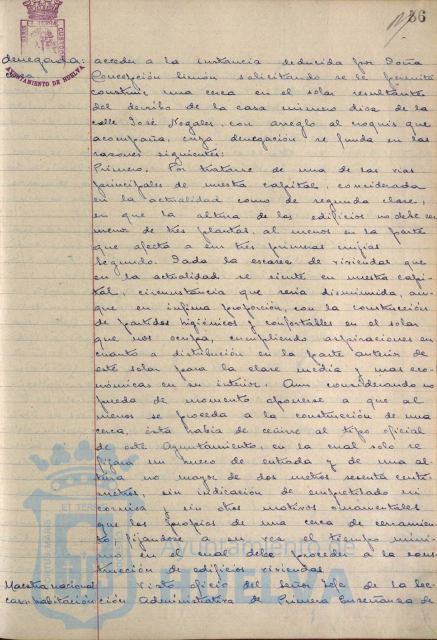 36
denegada: acceder a la instancia deducida por Doña
AYUNTAMIENTO DE HUELVA
Concepción Limón solicitando se le permita
construir una cerca en el solar resultantes
del derribo de la casa número doce de la
calle José Nogales, con arreglo al croquis que
acompaña, cuya denegación se funda en las
razones siguientes:
Primero. Por tratarse de una de las vias
principales de nuestra capital, considerada
en la actualidad como de segunda clase,
en que la altura de los edificios no debe ser
menor de tres plantas, al menos en la parte
que afecta a sus tres primeras
Segundo. Dada la escasez de viviendas que
en la actualidad se siente en nuestra capi-
tal, circunstancia que seria disminuida, aun-
que en infima proporción, con la construcción
de partidos higiénicos y confortables en el solar
que nos ocupa, cumpliendo aspiraciones en
cuanto a distribución en la parte anterior de
este solar para la clase media y mas eco-
nómicas en su interior. Aun considerando no
pueda de momento oponerse a que al
menos se proceda a la construcción de una
cerca, ésta habia de ceñirse al tipo oficial
de este Ayuntamiento, en la cual solo se
fijara un hueco de entrada y de una al-
tura no mayor de dos metros sesenta centi-
metros, sin indicación de empretilado ni
cornisa y sin otros motivos ornamentales
que los propios de una cerca de cerramien-
to fijandose a su vez el tiempo míni-
mo en el cual debe proceder a la cons-
trucción de edificios viviendas
Maestra nacional Visto oficio del Señor Jefe de la Sec-
casa habitación ción Administrativa de Primera Enseñanza de
Ayuntamiento de
HUELVA